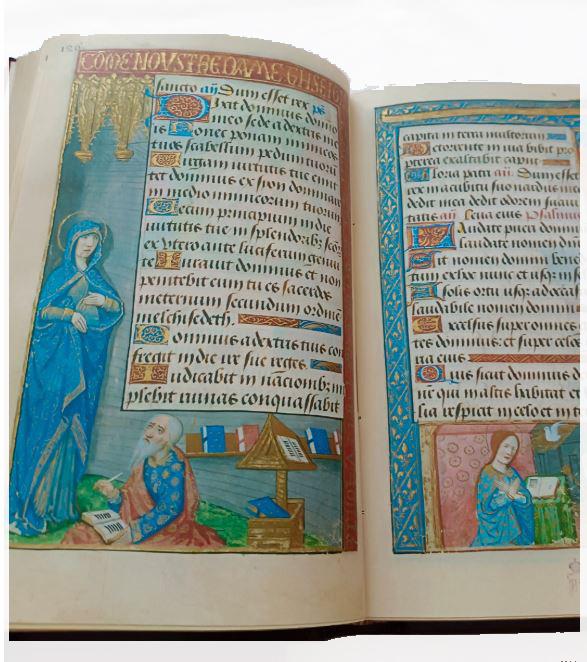 COMENOVSTREDAME
sancto añ Dum esset rex ps
Dixit dominus domino
meo sede a dextris me
is Donec ponam inimicos
tuos scabellum pedum tuorū
Virgam virtutis tue emit
tet dominus ex sion dominare
in medio inimicorum tuorum
Tecum principium in die
virtutis tue in splendorib; scōr
ex utero ante luciferum genui
te Iuravit dominus et non
penitebit eum tu es sacerdos
meternum secundum ordinē
melchisedech.
Dominus a dextris tuis con
fregit in die ire sue reges.
Iudicabit in nacionib; im
plebit ruinas conquassabit
capita in terra multorum
De torrente in via bibit pro
pterea exaltabit caput
Gloria patri añ Dum esset
rex in acubitu suo nardus
dedit mea dedit odorem
tatis añ Leva eius Psalmus
Laudate pueri domin
laudate nomen
Sit nomen domini bene
tum ex hoc nunc et usq; in
A solis ortu usq; ad
laudabile nomen domini
Excelsus super omnes
tes dominus: et super celos
ria eius.
Quis sicut dominus d
ne qui in altis habitat et
lia respicit in celo et in t